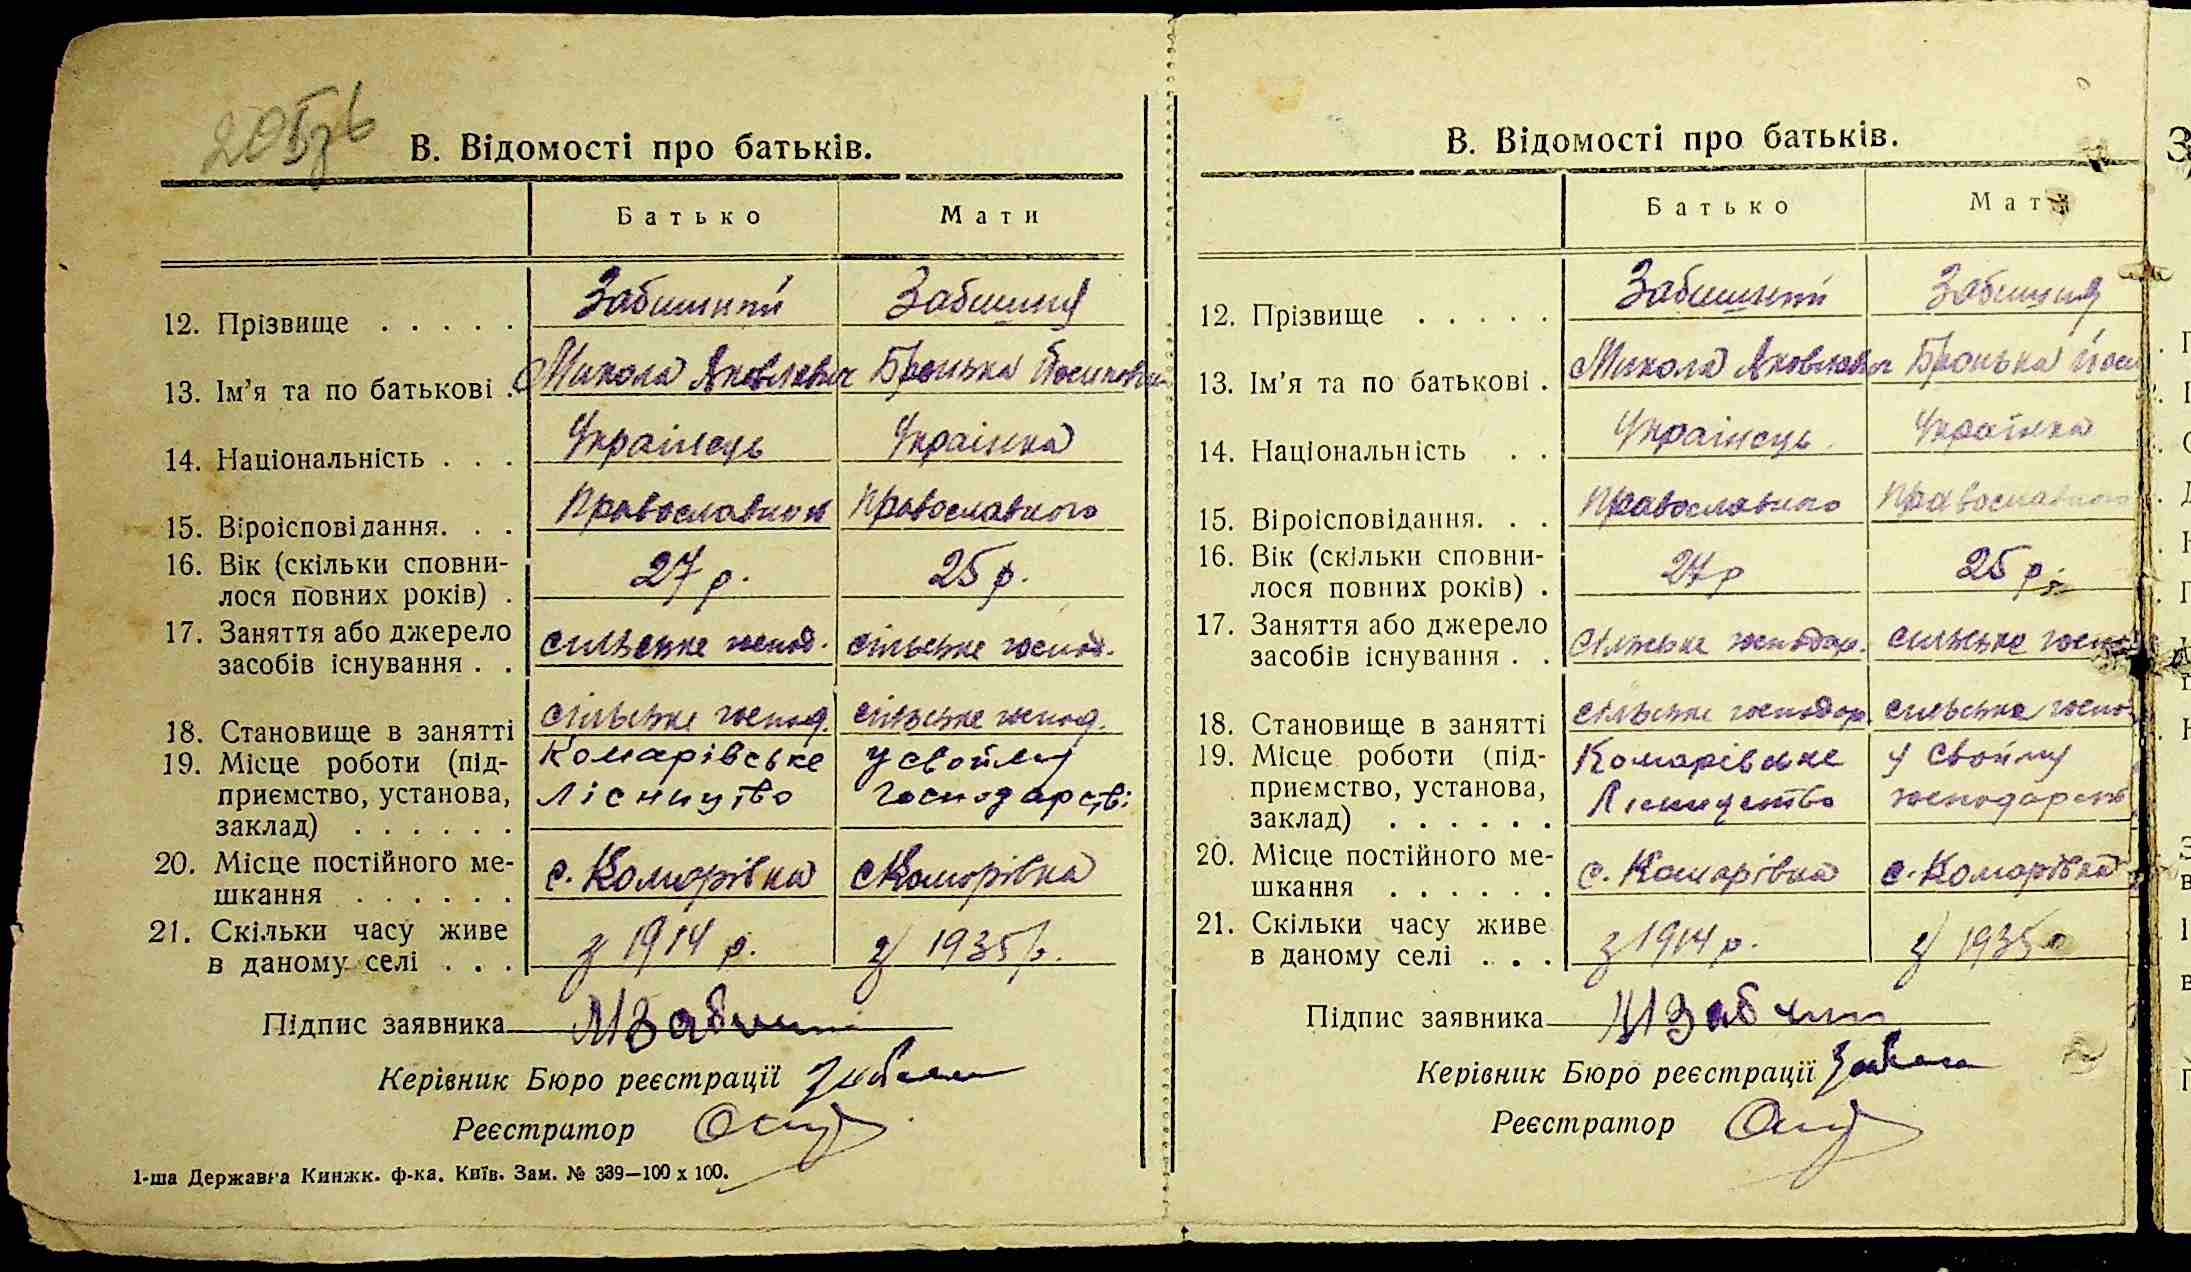 В. Відомості про батьків.
Батько Мати
12. Прізвище . . . . . Забишний Забишня
13. Ім'я та по батькові . Микола Яковлевич Бронька Йосиповн
14. Національність . . . Українець Українка
15. Віроісповідання. . . Православний Православного
16. Вік (скільки сповни- 27 р. 25 р.
лося повних років) .
17. Заняття або джерело
засобів існування . . сільське господ. сільське господ.
18. Становище в занятті сільське господ. сільське господ.
19. Місце роботи (під- Комарівське у своїму
приємство, установа, Лісництво господарстві
заклад) . . . . . .
20. Місце постійного ме- с. Комарівка с Комарівка
шкання . . . . . .
21. Скільки часу живе
в даному селі . . . з 1914 р. з 1935 р.
Підпис заявника МЗабишн
Керівник Бюро реєстрації
Реєстратор
1-ша Державна Книжк. ф-ка. Київ. Зам. № 339—100 х 100.
В. Відомості про батьків.
Батько Мати
12. Прізвище . . . . . Забишний Забишня
13. Ім'я та по батькові . Микола Яковлевич Бронька Йоси
14. Національність . . Українець Українка
15. Віроісповідання. . . Православного Православного
16. Вік (скільки сповни- 27 р 25 р.
лося повних років) .
17. Заняття або джерело
засобів існування . . сільське господар. сільське госп
18. Становище в занятті сільське господар. сільське госпо
19. Місце роботи (під- Комарівське у своїму
приємство, установа, Лісництво господарств
заклад) . . . . . .
20. Місце постійного ме- с. Комарівка с. Комарівка
шкання . . . . . .
21. Скільки часу живе
в даному селі . . . з 1914 р. з 1935
Підпис заявника МЗабишн
Керівник Бюро реєстрації
Реєстратор